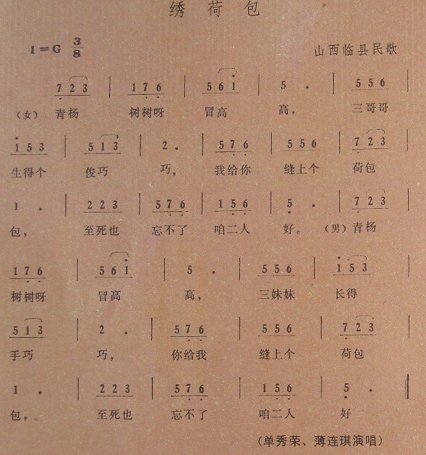 绣荷包
1=G 3/8 山西临县民歌
7 2 3 | 1 7 6 | 5 6 1 | 5 . | 5 5 6 |
(女) 青杨 树树呀 冒高 高, 三哥哥
1 5 3 | 5 1 3 | 2 . | 5 7 6 | 5 5 6 | 7 2 3 |
生得个 俊巧 巧, 我给你 缝上个 荷包
1 . | 2 2 3 | 5 7 6 | 1 5 6 | 5 . | 7 2 3 |
包, 至死也 忘不了 咱二人 好。 (男) 青杨
1 7 6 | 5 6 1 | 5 . | 5 5 6 | 1 5 3 |
树树呀 冒高 高, 三妹妹 长得
5 1 3 | 2 . | 5 7 6 | 5 5 6 | 7 2 3 |
手巧 巧, 你给我 缝上个 荷包
1 . | 2 2 3 | 5 7 6 | 1 5 6 | 5 . ‖
包, 至死也 忘不了 咱二人 好
(单秀荣、薄连琪演唱)